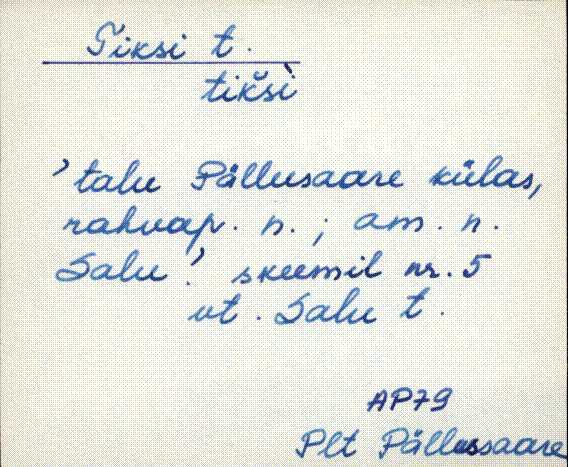 Tiksi t.
tikšì̬
'talu Pällusaare külas,
rahvap. n.; am. n.
Salu.' skeemil nr. 5
vt. Salu t.
AP79
Plt Pällusaare